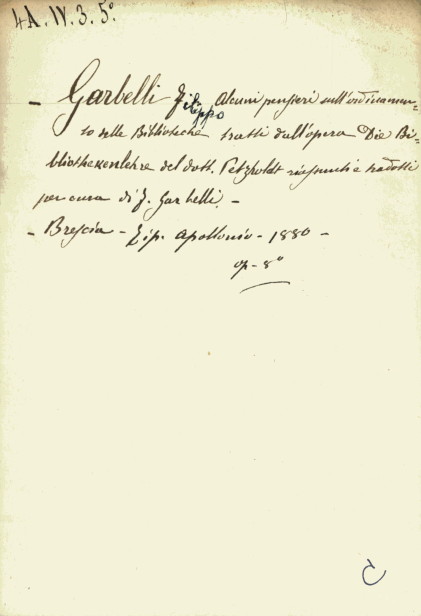 4A.IV.3.5°.
- Garbelli Filippo Alcuni pensieri sull'ordinamen-
to delle Biblioteche tratti dall'opera Die Bi-
bliothekenlehre del dott. Petzholdt riassunti e tradotti
per cura di F. Garbelli. -
- Brescia - Tip. Apollonio - 1880 -
op - 8°
C